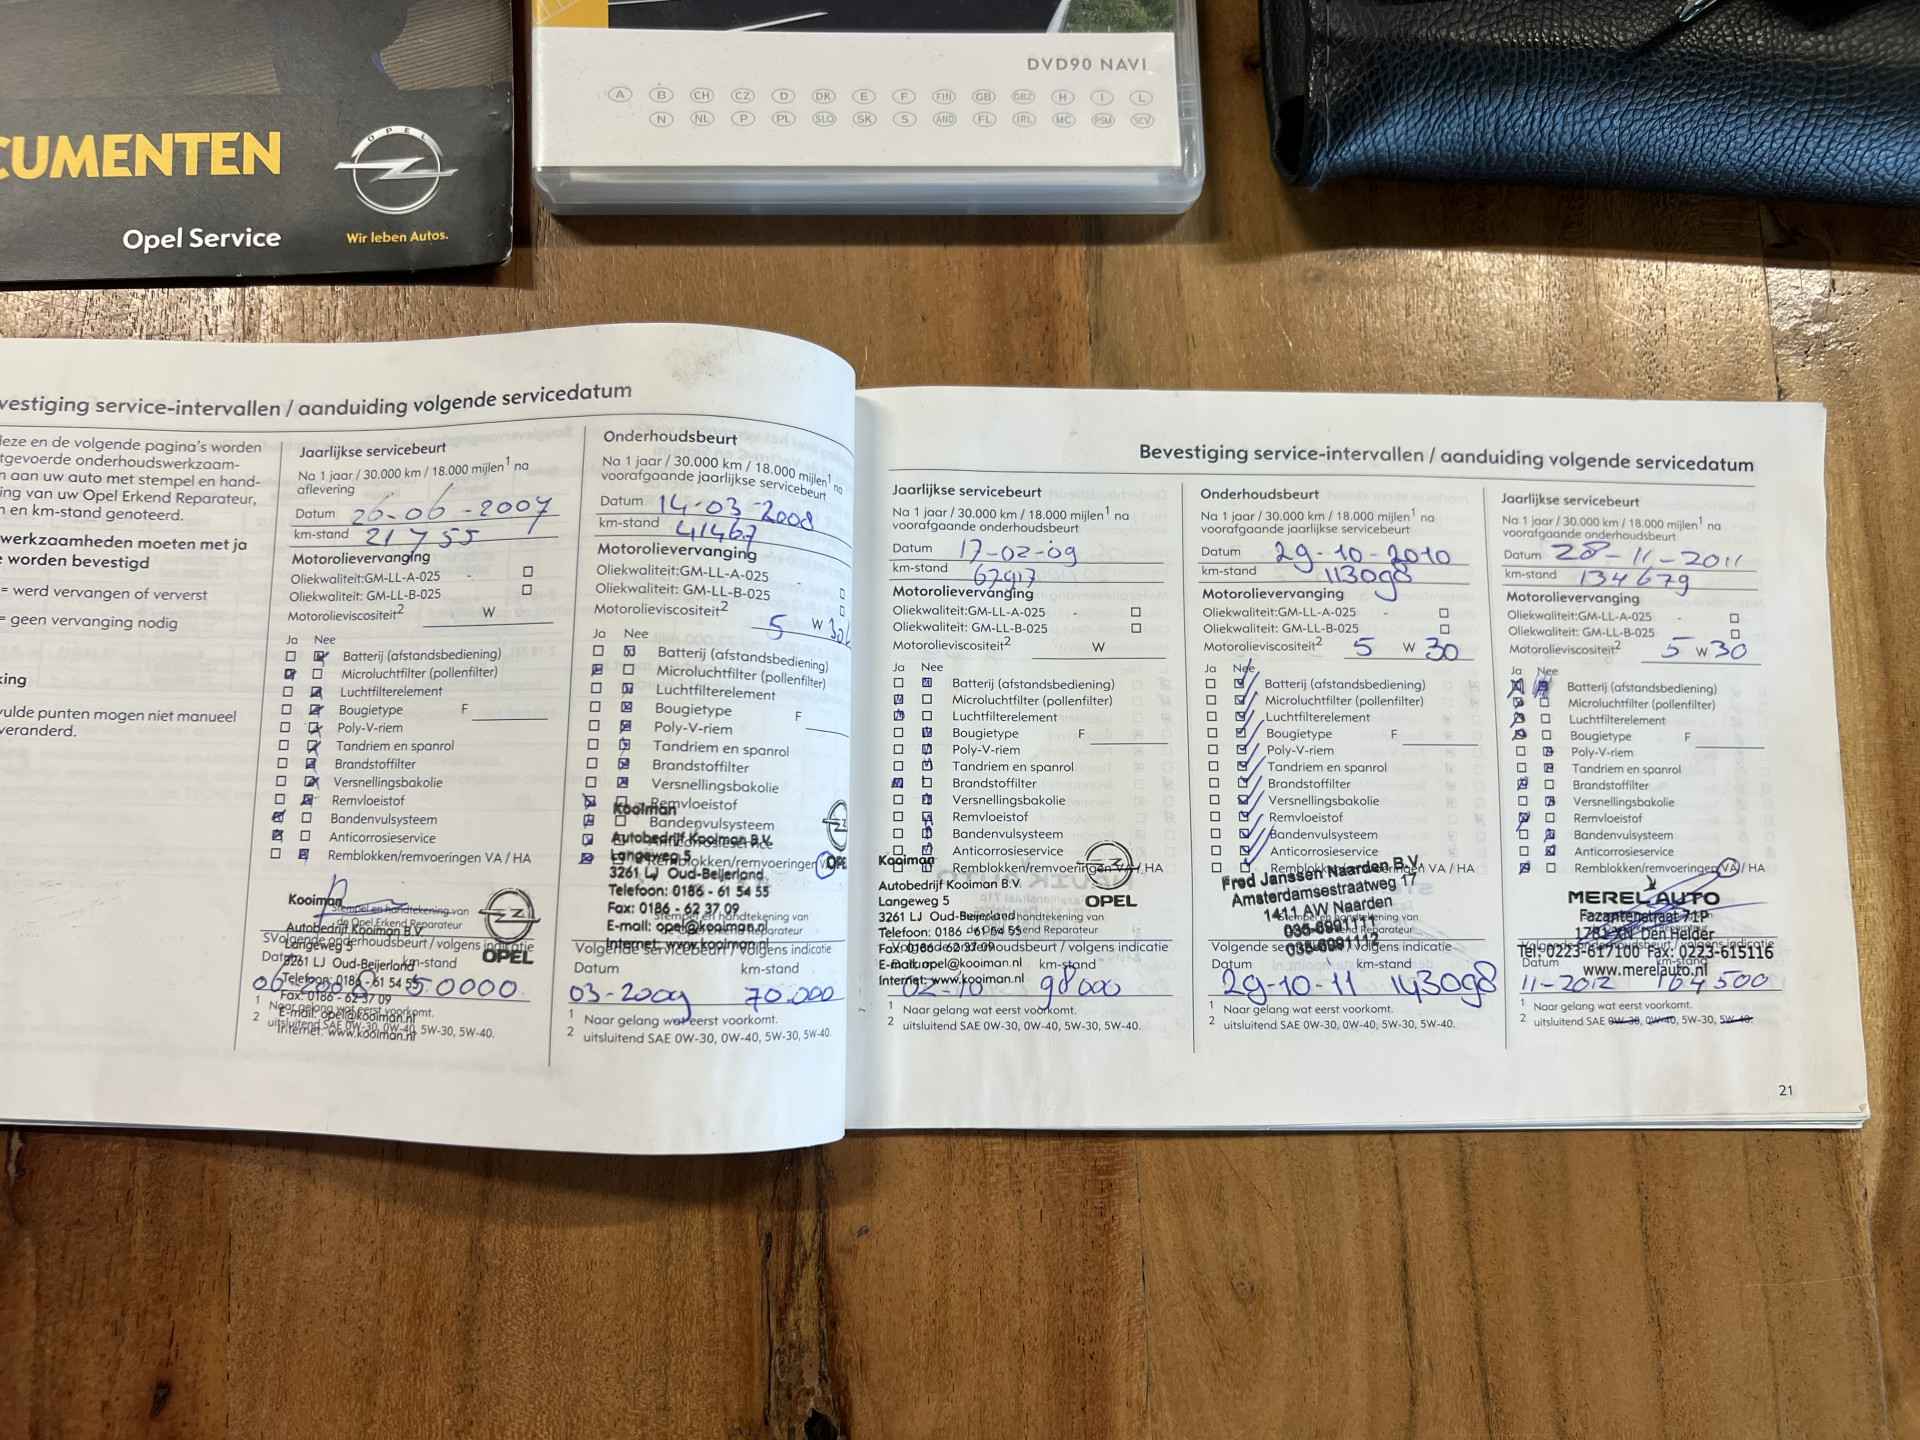 CUMENTEN
OPEL
Opel Service
Wir leben Autos.
DVD90 NAVI
A B CH CZ D DK E F FIN GB GBZ H I L
N NL P PL SLO SK S AND FL IRL MC RSM SCV
vestiging service-intervallen / aanduiding volgende servicedatum
deze en de volgende pagina's worden
tgevoerde onderhoudswerkzaam-
n aan uw auto met stempel en hand-
ing van uw Opel Erkend Reparateur,
n en km-stand genoteerd.
werkzaamheden moeten met ja
e worden bevestigd
= werd vervangen of ververst
= geen vervanging nodig
king
vulde punten mogen niet manueel
veranderd.
Jaarlijkse servicebeurt
Na 1 jaar / 30.000 km / 18.000 mijlen1 na
aflevering
Datum 26-06-2007
km-stand 21755
Motorolievervanging
Oliekwaliteit:GM-LL-A-025
Oliekwaliteit: GM-LL-B-025
Motorolieviscositeit2 W
Ja Nee
Batterij (afstandsbediening)
Microluchtfilter (pollenfilter)
Luchtfilterelement
Bougietype F
Poly-V-riem
Tandriem en spanrol
Brandstoffilter
Versnellingsbakolie
Remvloeistof
Bandenvulsysteem
Anticorrosieservice
Remblokken/remvoeringen VA / HA
Kooiman
Stempel en handtekening van
de Opel Erkend Reparateur
Autobedrijf Kooiman B.V.
Langeweg 5
OPEL
Volgende onderhoudsbeurt / volgens indicatie
3261 LJ Oud-Beijerland
Datum km-stand
Telefoon: 0186 - 61 54 55
06-2008 50000
Fax: 0186 - 62 37 09
1 Naar gelang wat eerst voorkomt.
E-mail: opel@kooiman.nl
2 uitsluitend SAE 0W-30, 0W-40, 5W-30, 5W-40.
Internet: www.kooiman.nl
Onderhoudsbeurt
Na 1 jaar / 30.000 km / 18.000 mijlen1 na
voorafgaande jaarlijkse servicebeurt
Datum 14-03-2008
km-stand 41467
Motorolievervanging
Oliekwaliteit:GM-LL-A-025
Oliekwaliteit: GM-LL-B-025
Motorolieviscositeit2 5 W 30
Ja Nee
Batterij (afstandsbediening)
Microluchtfilter (pollenfilter)
Luchtfilterelement
Bougietype F
Poly-V-riem
Tandriem en spanrol
Brandstoffilter
Versnellingsbakolie
Remvloeistof
Kooiman
Bandenvulsysteem
Autobedrijf Kooiman B.V.
Anticorrosieservice
Langeweg 5
Remblokken/remvoeringen
OPEL
3261 LJ Oud-Beijerland
Telefoon: 0186 - 61 54 55
Fax: 0186 - 62 37 09
Stempel en handtekening van
E-mail: opel@kooiman.nl
de Opel Erkend Reparateur
Internet: www.kooiman.nl
Volgende servicebeurt / volgens indicatie
Datum km-stand
03-2009 70.000
1 Naar gelang wat eerst voorkomt.
2 uitsluitend SAE 0W-30, 0W-40, 5W-30, 5W-40.
Bevestiging service-intervallen / aanduiding volgende servicedatum
Jaarlijkse servicebeurt
Na 1 jaar / 30.000 km / 18.000 mijlen1 na
voorafgaande onderhoudsbeurt
Datum 17-02-09
km-stand 67917
Motorolievervanging
Oliekwaliteit:GM-LL-A-025
Oliekwaliteit: GM-LL-B-025
Motorolieviscositeit2 W
Ja Nee
Batterij (afstandsbediening)
Microluchtfilter (pollenfilter)
Luchtfilterelement
Bougietype F
Poly-V-riem
Tandriem en spanrol
Brandstoffilter
Versnellingsbakolie
Remvloeistof
Bandenvulsysteem
Anticorrosieservice
Kooiman
Remblokken/remvoeringen VA / HA
Autobedrijf Kooiman B.V.
Langeweg 5
OPEL
3261 LJ Oud-Beijerland
Stempel en handtekening van
Telefoon: 0186 - 61 54 55
de Opel Erkend Reparateur
Fax: 0186 - 62 37 09
Volgende onderhoudsbeurt / volgens indicatie
E-mail: opel@kooiman.nl
Datum km-stand
Internet: www.kooiman.nl
02-10 98000
1 Naar gelang wat eerst voorkomt.
2 uitsluitend SAE 0W-30, 0W-40, 5W-30, 5W-40.
Onderhoudsbeurt
Na 1 jaar / 30.000 km / 18.000 mijlen1 na
voorafgaande jaarlijkse servicebeurt
Datum 29-10-2010
km-stand 113098
Motorolievervanging
Oliekwaliteit:GM-LL-A-025
Oliekwaliteit: GM-LL-B-025
Motorolieviscositeit2 5 W 30
Ja Nee
Batterij (afstandsbediening)
Microluchtfilter (pollenfilter)
Luchtfilterelement
Bougietype F
Poly-V-riem
Tandriem en spanrol
Brandstoffilter
Versnellingsbakolie
Remvloeistof
Bandenvulsysteem
Anticorrosieservice
Remblokken/remvoeringen VA / HA
Fred Janssen Naarden B.V.
Amsterdamsestraatweg 17
1411 AW Naarden
Stempel en handtekening van
de Opel Erkend Reparateur
Volgende servicebeurt / volgens indicatie
Datum km-stand
29-10-11 143098
1 Naar gelang wat eerst voorkomt.
2 uitsluitend SAE 0W-30, 0W-40, 5W-30, 5W-40.
Jaarlijkse servicebeurt
Na 1 jaar / 30.000 km / 18.000 mijlen1 na
voorafgaande onderhoudsbeurt
Datum 28-11-2011
km-stand 134679
Motorolievervanging
Oliekwaliteit:GM-LL-A-025
Oliekwaliteit: GM-LL-B-025
Motorolieviscositeit2 5 W 30
Ja Nee
Batterij (afstandsbediening)
Microluchtfilter (pollenfilter)
Luchtfilterelement
Bougietype F
Poly-V-riem
Tandriem en spanrol
Brandstoffilter
Versnellingsbakolie
Remvloeistof
Bandenvulsysteem
Anticorrosieservice
Remblokken/remvoeringen VA / HA
MEREL AUTO
Fazantenstraat 71P
1781 XN Den Helder
Volgende onderhoudsbeurt / volgens indicatie
Tel: 0223-617100 Fax: 0223-615116
Datum km-stand
www.merelauto.nl
11-2012 164500
1 Naar gelang wat eerst voorkomt.
2 uitsluitend SAE 0W-30, 0W-40, 5W-30, 5W-40.
21